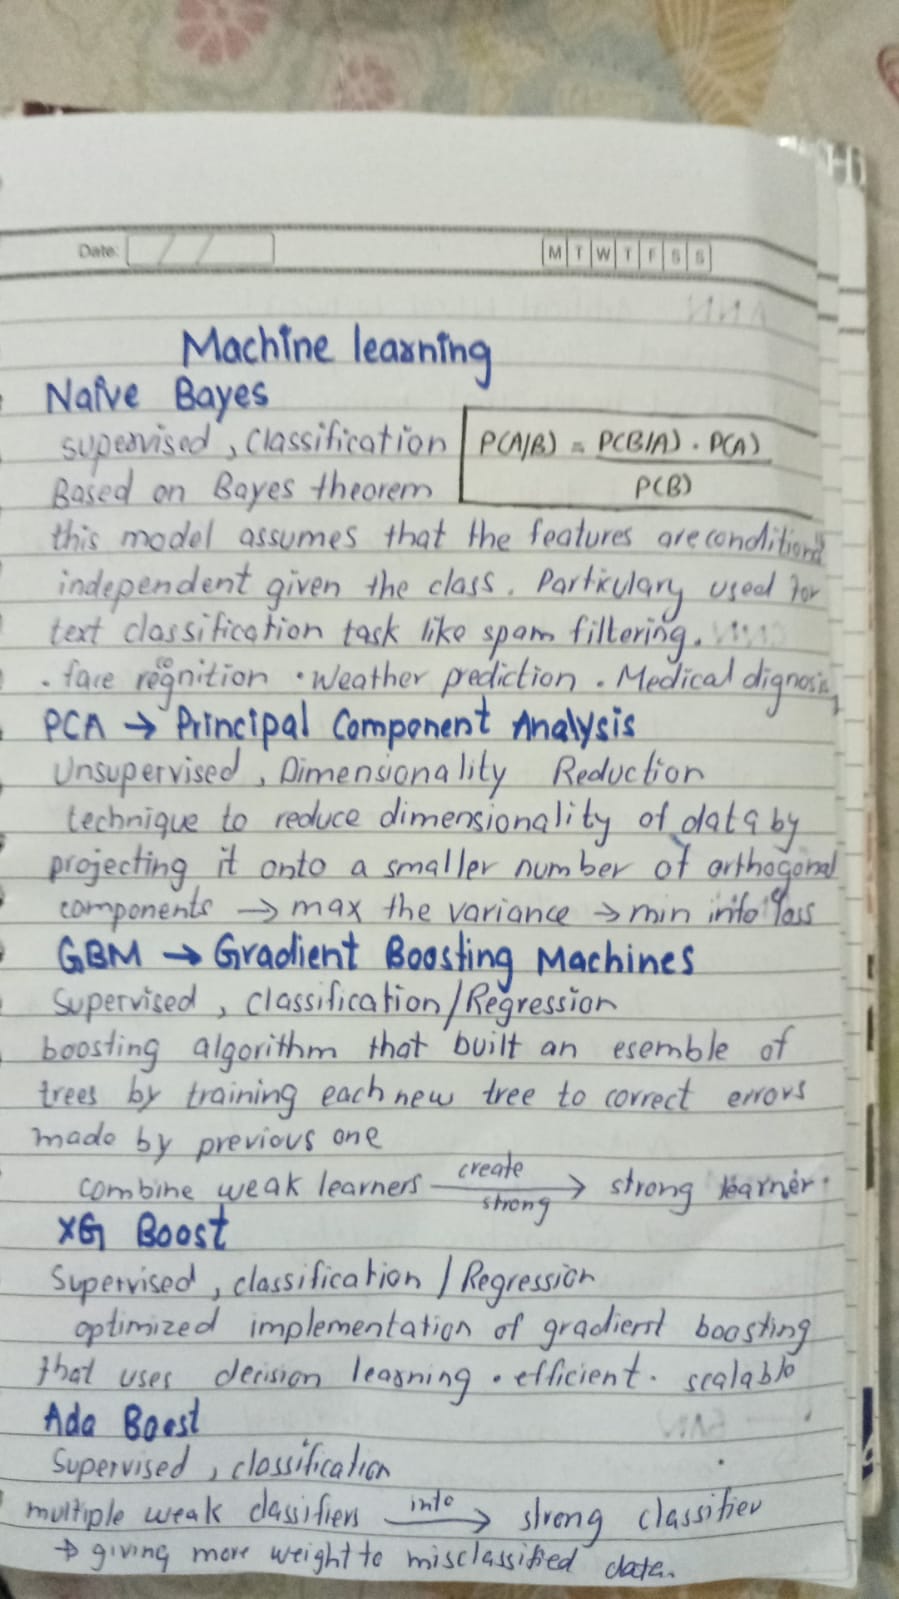 Date: / /
M T W T F S S
Machine learning
Naive Bayes
supervised, classification
P(A/B) = P(B/A) . P(A)
P(B)
Based on Bayes theorem
this model assumes that the features are conditional
independent given the class. Particulary used for
text classification task like spam filtering.
. face recognition . Weather prediction . Medical dignosis
PCA → Principal Component Analysis
Unsupervised, Dimensionality Reduction
technique to reduce dimensionality of data by
projecting it onto a smaller number of orthogonal
components → max the variance → min info loss
GBM → Gradient Boosting Machines
Supervised, classification/Regression
boosting algorithm that built an esemble of
trees by training each new tree to correct errors
made by previous one
combine weak learners create strong → strong learner.
XG Boost
Supervised, classification / Regression
optimized implementation of gradient boosting
that uses decision learning . efficient . scalable
Ada Boost
Supervised, classification
multiple weak classifiers into → strong classifier
→ giving more weight to misclassified data.